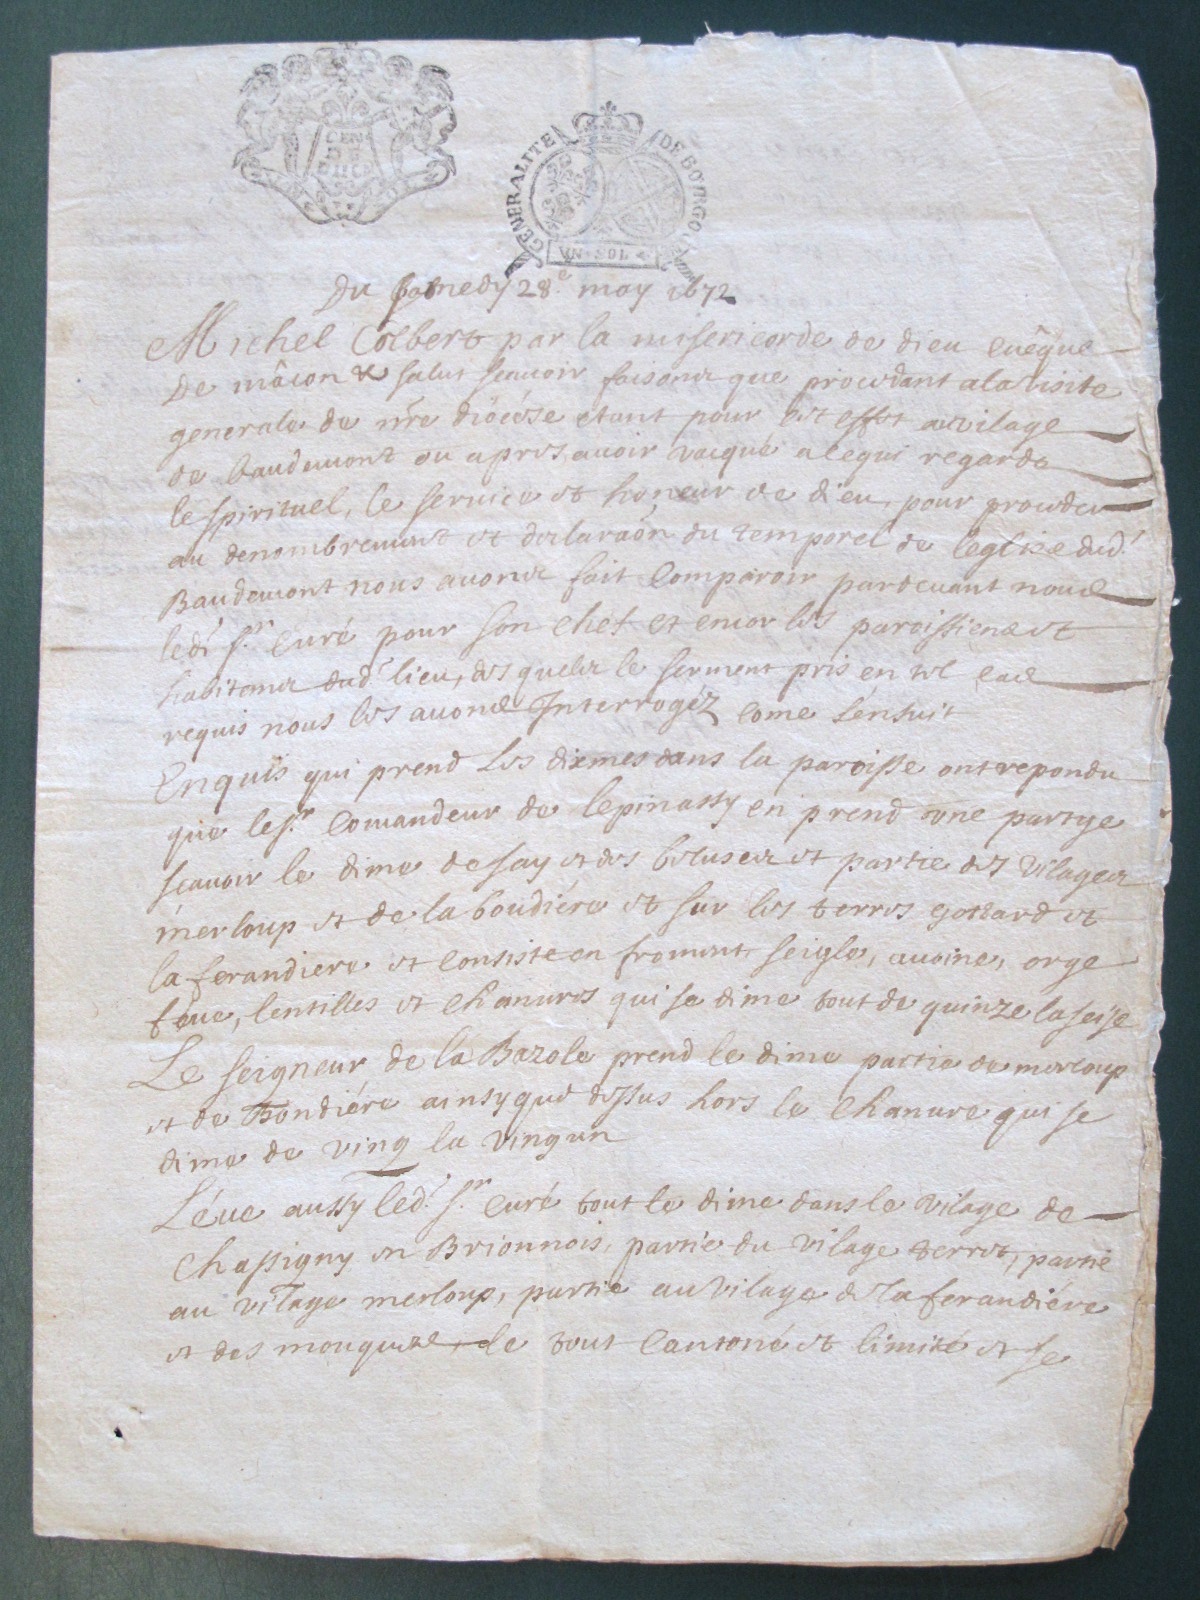 CEN
GENERALITE DE BOVRGO
VN SOL
Du samedy 28e may 1672
Michel Colbert par la misericorde de dieu evêque
de mâcon & salut scavoir faisons que procedant a la visite
generale de nre diocése etant pour cet effet au vilage
de baudemont ou apres avoir vacqué a ce qui regarde
le spirituel, le service et honeur de dieu, pour proceder
au denombrement et declaraon du temporel de leglise dud.
Baudemont nous avons fait comparoir pardevant nous
led. sr. curé pour son chef et encor les paroissiens et
habitans dud. lieu, des quels le serment pris en tel cas
requis nous les avons Interrogéz come s'ensuit
Enquis qui prend les dixmes dans la paroisse ont repondu
que le sr. comandeur de lepinassy en prend une partye
scavoir le dime de fay et des beluses et partie des vilages
merloup et de la boudiére et sur les terres gottard et
la ferandiere et consiste en froment, seigle, avoine, orge
feve, lentilles et chanvres qui se dime tout de quinze la seise
Le seigneur de la Bazole prend le dime partie de merloup
et de Bondiére ainsy que dessus hors le chanvre qui se
dime de vinq la vingun
Léve aussy led. sr. curé tout le dime dans le vilage de
Chassigny en Brionnois, partie du vilage terret, partie
au vilage merloup, partie au vilage de la ferandiére
et des mouques, le tout cantoné et limité et se